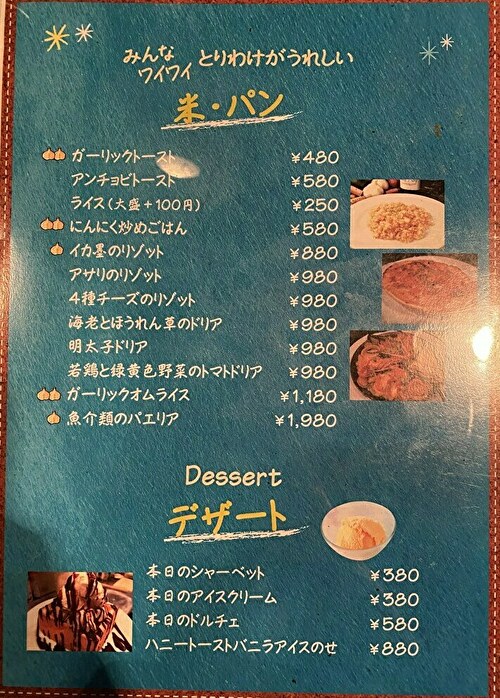 みんな
ワイワイ とりわけがうれしい
米・パン
ガーリックトースト ¥480
アンチョビトースト ¥580
ライス(大盛+100円) ¥250
にんにく炒めごはん ¥580
イカ墨のリゾット ¥880
アサリのリゾット ¥980
4種チーズのリゾット ¥980
海老とほうれん草のドリア ¥980
明太子ドリア ¥980
若鶏と緑黄色野菜のトマトドリア ¥980
ガーリックオムライス ¥1,180
魚介類のパエリア ¥1,980
Dessert
デザート
本日のシャーベット ¥380
本日のアイスクリーム ¥380
本日のドルチェ ¥580
ハニートーストバニラアイスのせ ¥880